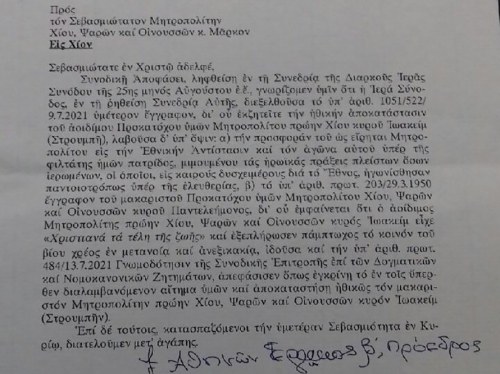 Πρός
τόν Σεβασμιώτατον Μητροπολίτην
Χίου, Ψαρῶν καί Οἰνουσσῶν κ. Μᾶρκον
Εἰς Χίον
Σεβασμιώτατε ἐν Χριστῷ ἀδελφέ,
Συνοδικῇ Ἀποφάσει, ληφθείσῃ ἐν τῇ Συνεδρίᾳ τῆς Διαρκοῦς Ἱερᾶς
Συνόδου τῆς 25ης μηνός Αὐγούστου ἐ.ἔ., γνωρίζομεν ὑμῖν ὅτι ἡ Ἱερά Σύνο-
δος, ἐν τῇ ρηθείσῃ Συνεδρίᾳ Αὐτῆς, διεξελθοῦσα τό ὑπ' ἀριθ. 1051/522/
9.7.2021 ὑμέτερον ἔγγραφον, δι' οὗ ἐκζητεῖτε τήν ἠθικήν ἀποκατάστα-
σιν τοῦ ἀοιδίμου Προκατόχου ὑμῶν Μητροπολίτου πρώην Χίου κυροῦ Ἰωακείμ
(Στρουμπῆ), λαβοῦσα δ' ὑπ' ὄψιν: α) τήν προσφοράν τοῦ ὡς εἴρηται Μητρο-
πολίτου εἰς τήν Ἐθνικήν Ἀντίστασιν καί τόν ἀγῶνα αὐτοῦ ὑπέρ τῆς
φιλτάτης ἡμῶν πατρίδος, μιμουμένου τάς ἡρωικάς πράξεις πλείστων ὅσων
ἱερωμένων, οἱ ὁποῖοι, εἰς καιρούς δυσχειμέρους διά τό Ἔθνος, ἠγωνίσθησαν
παντοιοτρόπως ὑπέρ τῆς ἐλευθερίας, β) τό ὑπ' ἀριθ. πρωτ. 203/29.3.1950
ἔγγραφον τοῦ μακαριστοῦ Προκατόχου ὑμῶν Μητροπολίτου Χίου, Ψαρῶν
καί Οἰνουσσῶν κυροῦ Παντελεήμονος, δι' οὗ ἐμφαίνεται ὅτι ὁ ἀοίδιμος
Μητροπολίτης πρώην Χίου, Ψαρῶν καί Οἰνουσσῶν κυρός Ἰωακείμ εἶχε
«Χριστιανά τά τέλη τῆς ζωῆς» καί ἐξεπλήρωσεν πάμπτωχος τό κοινόν τοῦ
βίου χρέος ἐν μετανοίᾳ καί ἀνεξικακίᾳ, ἰδοῦσα καί τήν ὑπ' ἀριθ. πρωτ.
484/13.7.2021 Γνωμοδότησιν τῆς Συνοδικῆς Ἐπιτροπῆς ἐπί τῶν Δογματικῶν
καί Νομοκανονικῶν Ζητημάτων, ἀπεφάσισεν ὅπως ἐγκρίνῃ τό ἐν τοῖς ὕπερ-
θεν διαλαμβανόμενον αἴτημα ὑμῶν καί ἀποκαταστήσῃ ἠθικῶς τόν μακαρι-
στόν Μητροπολίτην πρώην Χίου, Ψαρῶν καί Οἰνουσσῶν κυρόν Ἰωακείμ
(Στρουμπῆν).
Ἐπί δέ τούτοις, κατασπαζόμενοι τήν ὑμετέραν Σεβασμιότητα ἐν Κυ-
ρίῳ, διατελοῦμεν μετ' ἀγάπης.
† Ἀθηνῶν Ἱερώνυμος Β', Πρόεδρος